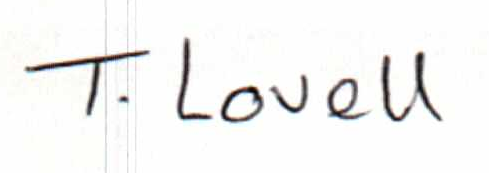 T. Lovell